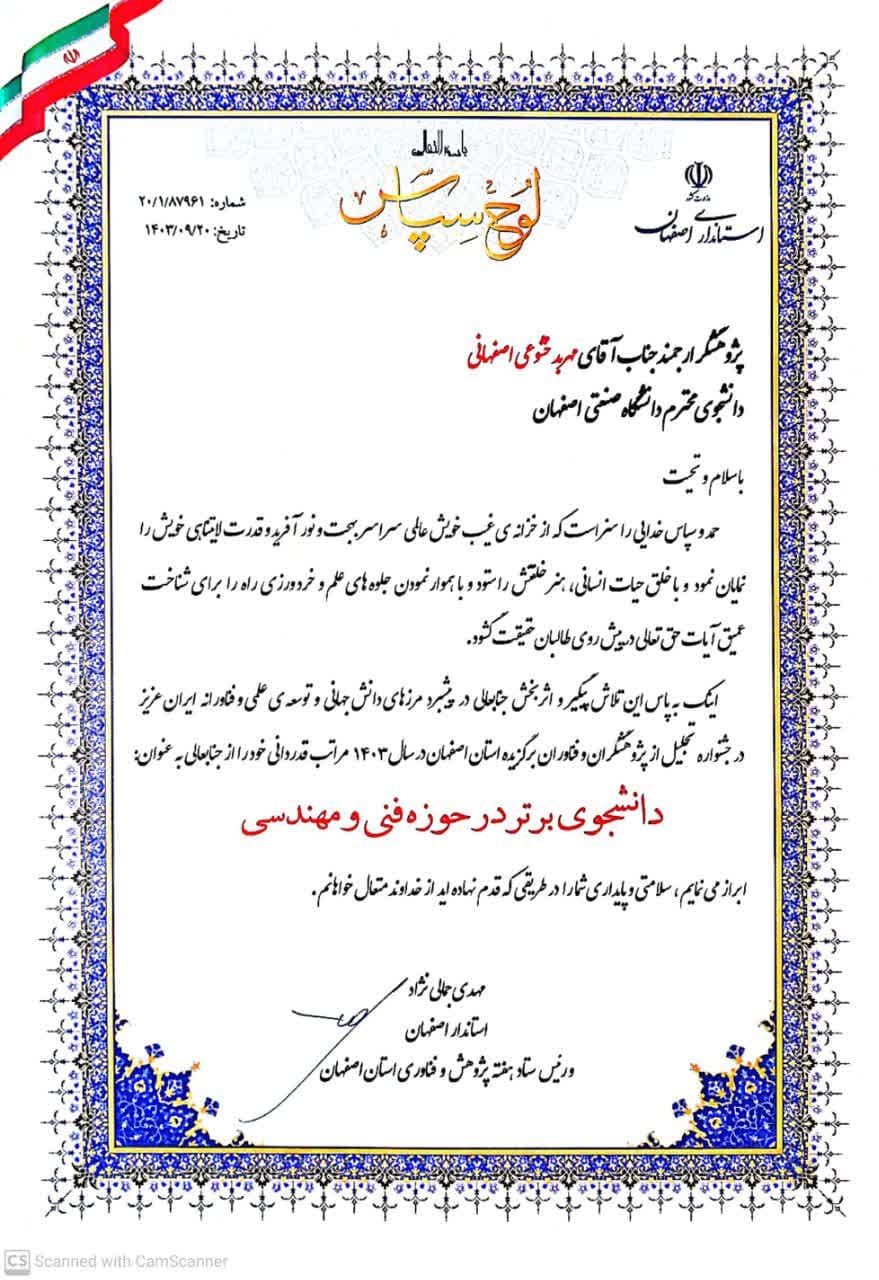 باسمه تعالی
لوح سپاس
وزارت کشور
استانداری اصفهان
شماره: ۲۰/۱/۸۷۹۶۱
تاریخ: ۱۴۰۳/۰۹/۲۰
پژوهشگر ارجمند جناب آقای مهربد خشوعی اصفهانی
دانشجوی محترم دانشگاه صنعتی اصفهان
با سلام و تحیت
حمد و سپاس خدایی را سزاست که از خزانه ی غیب خویش عالمی سراسر بهجت و نور آفرید و قدرت لایتناهی خویش را
نمایان نمود و با خلق حیات انسانی، هنر خلقتش را ستود و با هموار نمودن جلوه های علم و خردورزی راه را برای شناخت
عمیق آیات حق تعالی در پیش روی طالبان حقیقت گشود.
اینک به پاس این تلاش پیگیر و اثربخش جنابعالی در پیشبرد مرزهای دانش جهانی و توسعه ی علمی و فناورانه ایران عزیز
در جشنواره تجلیل از پژوهشگران و فناوران برگزیده استان اصفهان در سال ۱۴۰۳ مراتب قدردانی خود را از جنابعالی به عنوان:
دانشجوی برتر در حوزه فنی و مهندسی
ابراز می نمایم، سلامتی و پایداری شما را در طریقی که قدم نهاده اید از خداوند متعال خواهانم.
مهدی جمالی نژاد
استاندار اصفهان
و رئیس ستاد هفته پژوهش و فناوری استان اصفهان
CS Scanned with CamScanner